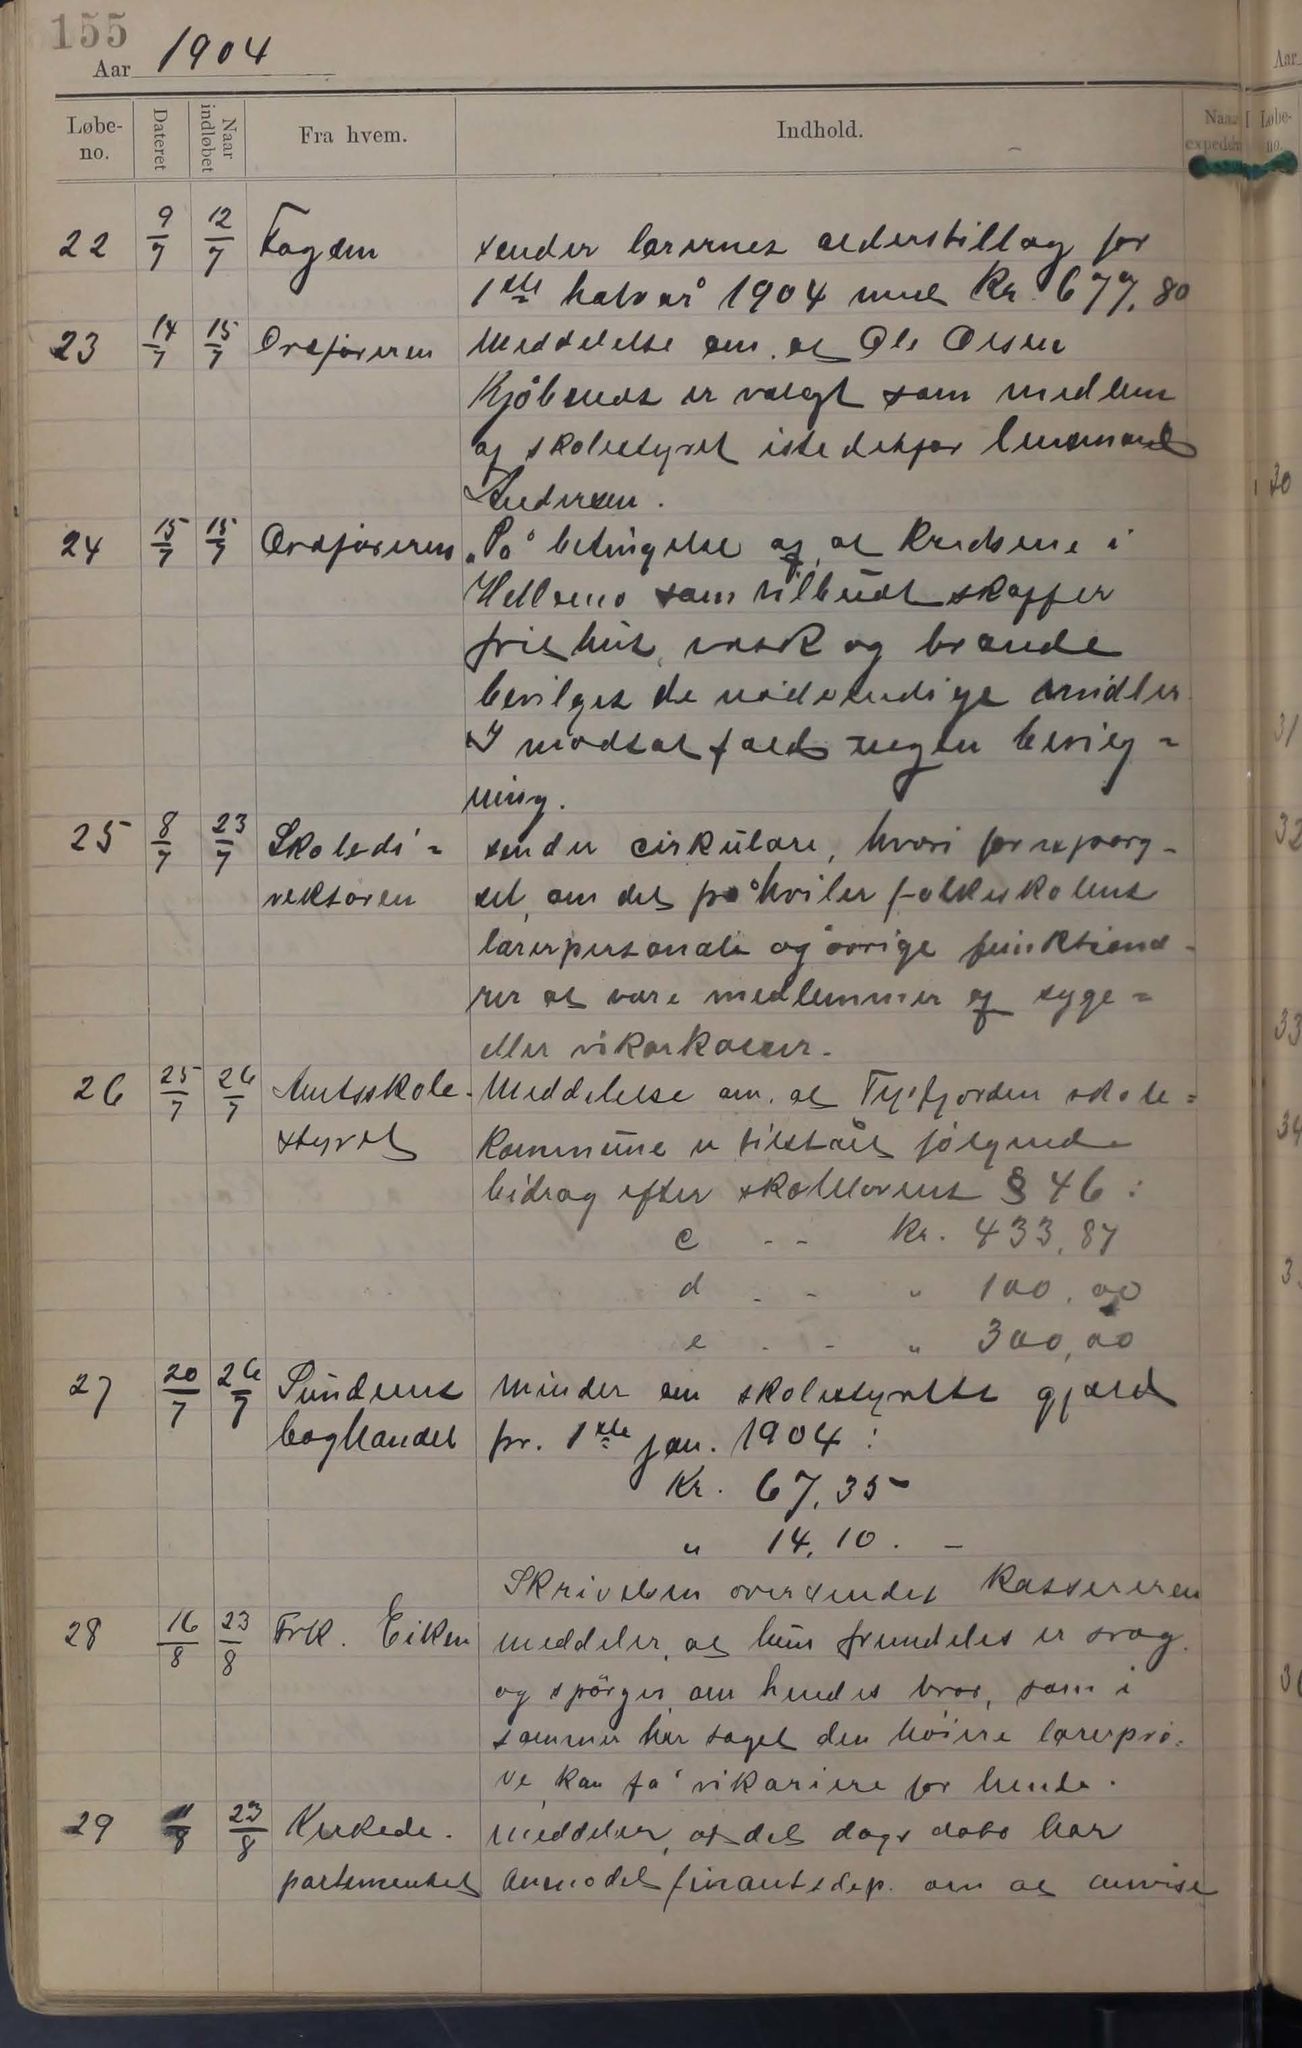 155
Aar 1904
Løbe-no. Dateret Naar indløbet Fra hvem. Indhold. Naar expedder
22 9/7 12/7 Fogden sender lærernes alderstillæg for
1ste halvår 1904 med Kr. 677,80
23 14/7 15/7 Ordføreren Meddelelse om, at Ole Olsen
Kjöbnes er valgt som medlem
af skolestyret istedetfor lensmand
Andersen.
24 15/7 15/7 Ordføreren „På betingelse af, at Kredsene i
Hellemo som tilbudt skaffer
frit hus, vask og brænde
bevilges de nødvendige midler.
I modsat fald ingen bevilg=
ning.
25 8/7 23/7 Skoledi= sender cirkulære, hvori forespørg-
rektøren sel, om det påhviler folkeskolens
lærerpersonale og övrige funktionæ-
rer at være medlemmer af syge=
eller vikarkasser.
26 25/7 26/7 Amtsskole- Meddelelse om, at Tysfjorden skole=
styret kommune er tilstået følgende
bidrag efter skolelovens § 46:
c - - Kr. 433,87
d - - " 100,00
e - - " 300,00
27 20/7 26/7 Sundens minder om skolestyrets gjæld
boghandel pr. 1ste jan. 1904:
Kr. 67,35
" 14,10. -
Skrivelsen oversendes Kassereren
28 16/8 23/8 Frk. Eiken meddeler, at hun fremdeles er svag
og spörger, om hendes bror, som i
sommer har taget den høiere lærerprö-
ve, kan få vikariere for hende.
29 11/8 23/8 Kirkede- meddeler, at det dags dato har
partementet anmodet finantsdep. om at anvise
Aar
Løbe-no.
30
31
32
33
34